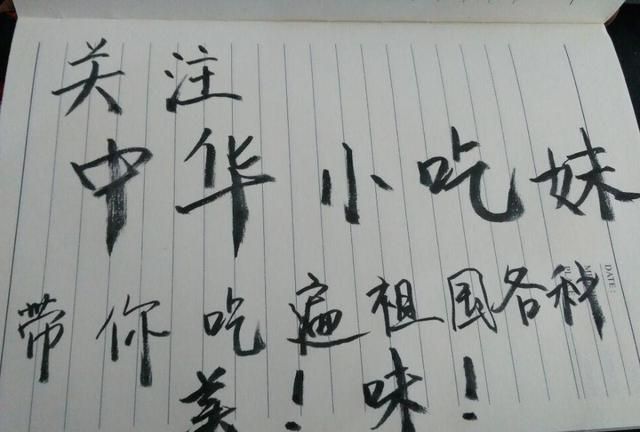 关注
中华小吃妹
带你吃遍祖国各种
美！味！
DATE: